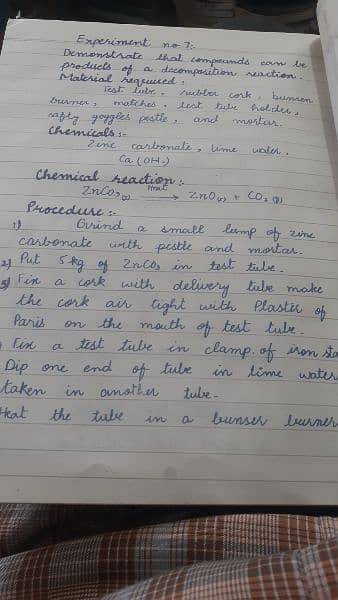 Experiment no 7:-
Demonstrate that compounds can be
products of a decomposition reaction.
Material required:
Test tube, rubber cork, bunsen
burner, matches, test tube holder,
safty goggles pestle, and mortar.
Chemicals:-
Zinc carbonate, lime water.
Ca(OH-)
Chemical reaction:-
heat
ZnCO3(s) → ZnO(s) + CO2(g)
Procedure:-
1) Grind a small lump of zinc
carbonate with pestle and mortar.
2) Put 5kg of ZnCO3 in test tube.
3) Fix a cork with delivery tube make
the cork air tight with Plaster of
Paris on the mouth of test tube.
Fix a test tube in clamp of iron sta
Dip one end of tube in lime water
taken in another tube.
Heat the tube in a bunser burner